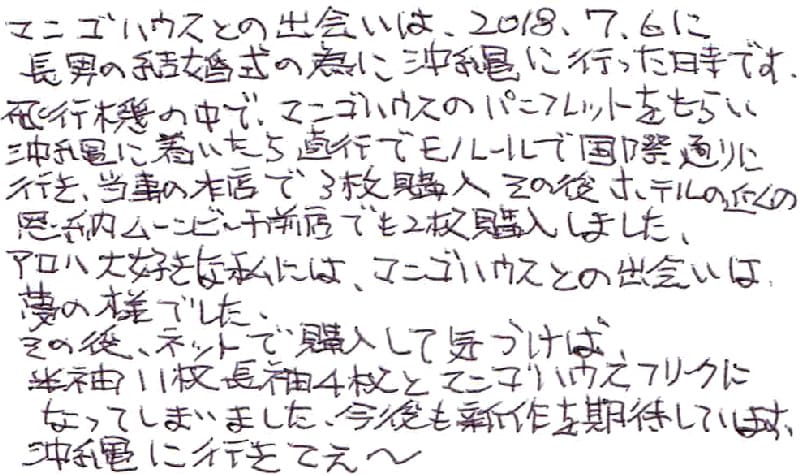 マンゴハウスとの出会いは、2018、7、6に
長男の結婚式の為に沖縄に行った時です.
飛行機の中で、マンゴハウスのパンフレットをもらい
沖縄に着いたら直行でモルールで国際通りに
行き、当事の本店で3枚購入その後ホテルの近くの
恩納ムーンビーチ前店でも2枚購入しました、
アロハ大好きな私には、マンゴハウスとの出会いは
夢の様でした、
その後、ネットで購入して気づけば、
半袖11枚長袖4枚とマンゴハウスフリークに
なってしまいました、今後も新作を期待しています、
沖縄に行きてえ〜